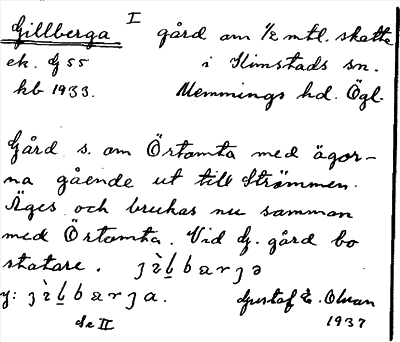 Gillberga I gård om 1/2 mtl. skatte
ek. G 55 i Kimstads sn.
hb 1933. Memmings hd. Ögl.
Gård s. om Örtomta med ägor-
na gående ut till Strömmen.
Äges och brukas nu samman
med Örtomta. Vid G. gård bo
statare. jìḷḅbarjə
y: jìḷḅbarja. Gustaf E. Olsson
Se II 1937